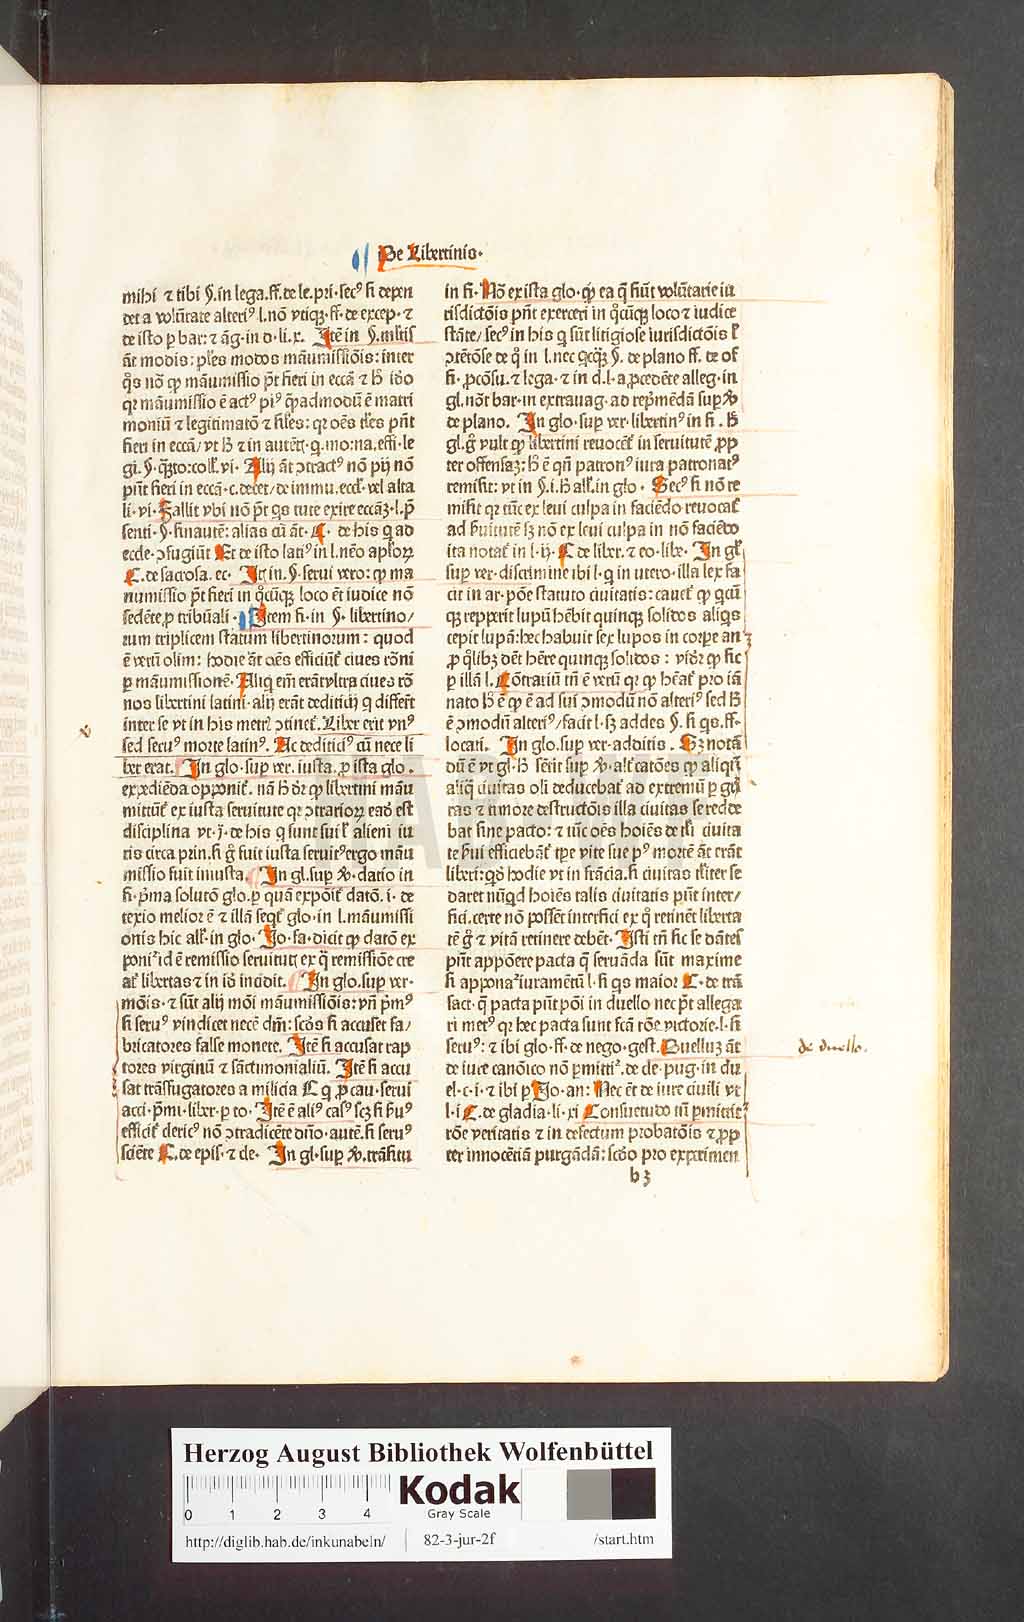 De Libertinis.
mihi ⁊ tibi §. in lega. ff. de le. pri. secꝰ si depen
det a volūtate alteriꝰ l. nō vtiqꝫ. ff. de excep. ⁊
de isto p bar: ⁊ āg. in d. li. x. Itē in §. mltis
āt modis: ples modos māumissiōis: inter
q̄s nō ꝙ māumissio pt̄ fieri in ecca ⁊ ħ iō
qꝛ māumissio ē actꝰ piꝰ q̄admodū ē matri
moniū ⁊ legitimatō ⁊ siles: qꝛ oēs tles pn̄t
fieri in ecca/ vt ħ ⁊ in autēt. q. mo. na. effi. le
gi. §. Alij āt ꝯtractꝰ nō pij nō
pn̄t fieri in ecca. c. decet/ de immu. eccl. vel alta
li. vi. Fallit vbi nō pt̄ qs tute exire eccaꝫ. l. p̄
senti. §. sinautē: alias cū āt. C. de his q ad
eccle. ꝯfugiūt Et de isto latiꝰ in l. neo aploꝝ
C. de sacrosa. ec. It in. §. serui vero: ꝙ ma
numissio pt̄ fieri in q̄cūqꝫ loco ēt iudice nō
sedēte p tribūali. Item fi. in §. libertino/
rum triplicem statum libertinorum: quod
ē verū olim: hodie āt oēs efficiūt ciues rōni
p māumissionē. Aliq em erāt vltra ciues ro
nos libertini latini. alij erāt dediticij q differt
inter se vt in his metr ꝯtinet. Liber erit vnꝰ
sed seruꝰ morte latinꝰ. Ac deditici cū nece li
ber erat. In glo. sup ver. iusta. p ista glo.
expediēda opponit. nā ħ dr ꝙ libertini māu
mittūt ex iusta seruitute qꝛ ꝯtrarioꝝ eadē est
disciplina vt. j. de his q sunt sui l alieni iu
ris circa prin. si g fuit iusta seruitꝰ ergo māu
missio fuit iniusta. In gl. sup ꝟ. datio in
fi. pma solutō glo. p quā expōit datō. i. de
texio melior ē ⁊ illā seqt glo. in l. māumissi
onis hic all. in glo. Jo. fa. dicit ꝙ datō ex
poni id ē remissio seruitut ex q remissiōe cre
at libertas ⁊ in iō incidit. In glo. sup ver.
mōis. ⁊ sūt alij mōi māumissiōis: vn pmꝰ
si seruꝰ vindicet necē dn̄i: scōs si accuset fa/
bricatores false monete. Itē si accusat rap
tores virginū ⁊ sāctimonialiū. Itē si accu
sat trāsfugatores a milicia C q p cau. serui
acci. pmi. liber. p to. Itē ē aliꝰ casꝰ scꝫ si ħuꝰ
efficit clericꝰ nō ꝯtradicēte dn̄o. autē. si seruꝰ
sciēte C. de epis. ⁊ cle. In gl. sup ꝟ. trāsitu
in fi. Nō ex ista glo. ꝙ ea q̄ fiūt volūtarie iu
risdictōis pn̄t exerceri in q̄cūqꝫ loco ⁊ iudice
stāte/ secꝰ in his q sūt litigiose iurisdictōis l
ꝯtētōse de q in l. nec qcqꝫ §. de plano ff. de of
fi. pcōsu. ⁊ lega. ⁊ in d. l. a pcedēte alleg. in
gl. nōt bar. in extrauag. ad repmēdā sup ꝟ
de plano. In glo. sup ver. libertinꝰ in fi. ħ
gl. g vult ꝙ libertini reuocēt in seruitutē ꝓp
ter offensaꝫ: ħ ē qn patronꝰ iura patronatꝰ
remisit: vt in §. i. ħ all. in glo. Secꝰ si nō re
misit qꝛ tūc ex leui culpa in faciēdo reuocat
ad ħuitutē sꝫ nō ex leui culpa in nō faciēdo
ita notat in l. ij. C de liber. ⁊ eo. libe. In gl
sup ver. discrimine ibi l. q in vtero. illa lex fa
cit in ar. pōe statuto ciuitatis: cauet ꝙ qcū
qꝫ reppererit lupū hēbit quinqꝫ solidos aliqs
cepit lupā: hec habuit sex lupos in corpe an
p qlibꝫ dēt hēre quinqꝫ solidos: vidr ꝙ sic
p illā l. Cōtrariū tn ē verū qꝛ ꝙ hēat pro iā
nato ħ ē ꝙ ē ad sui ꝯmodū nō alteriꝰ sed ħ
ē ꝯmodū alteriꝰ/ facit l. sꝫ addes §. si qs. ff.
locati. In glo. sup ver. adoitis. Sꝫ notā
dū ē vt gl. ħ sētit sup ꝟ. alt catōes ꝙ aliqn
aliq ciuitas oli deducebat ad extremū p gu
ras ⁊ timore destructōis illa ciuitas se redde
bat sine pacto: ⁊ tūc oēs hoiēs de tli ciuita
te ħui efficiebāt tpe vite sue pꝰ mortē āt erāt
liberi: qd hodie vt in frācia. si ciuitas tlr se
daret nūqd hoiēs talis ciuitatis pn̄t inter/
fici. certe nō possēt interfici ex q retinēt liberta
tē g ⁊ vitā retinere debēt. Isti tn sic se dātes
pn̄t appōere pacta q seruāda sūt maxime
si apponat iuramētū l. si qs maior C. de trā
sact. q pacta pn̄t pōi in duello nec pt̄ allega
ri metꝰ qꝛ hec pacta sunt fca rōe victorie. l. si
seruꝰ: ⁊ ibi glo. ff. de nego. gest. Duelluꝫ āt
de iure canōico nō pmittit. de cle. pug. in du
el. c. i. ⁊ ibi p Jo. an: Nec ēt de iure ciuili vt
l. i C. de gladia. li. xi Consuetudo tn pmittit
rōe veritatis ⁊ in defectum probatōis ⁊ ꝓp
ter innocētiā purgādā: scōo pro experimen
de duello.
b 3
HAB WF
Herzog August Bibliothek Wolfenbüttel
0 1 2 3 4
Kodak
Gray Scale
http://diglib.hab.de/inkunabeln/ 82-3-jur-2f /start.htm